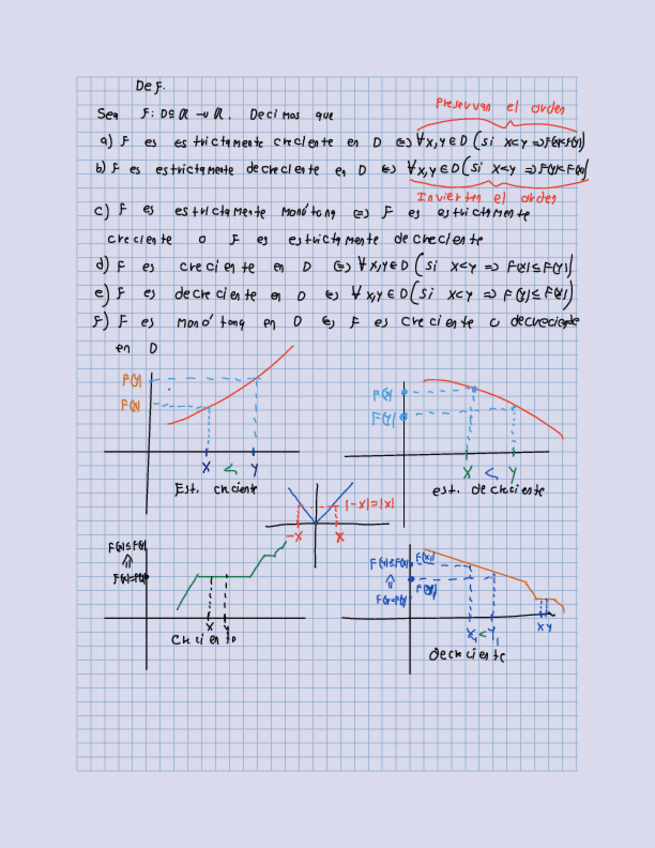 Def.
Sea F: D⊆R → R. Decimos que
Preservan el orden
a) F es estrictamente creciente en D ⇔ ∀x,y∈D (si x<y ⇒ F(x)<F(y))
b) F es estrictamente decreciente en D ⇔ ∀x,y∈D (si x<y ⇒ F(y)<F(x))
Invierten el orden
c) F es estrictamente monótona ⇔ F es estrictamente
creciente o F es estrictamente decreciente
d) F es creciente en D ⇔ ∀x,y∈D (si x<y ⇒ F(x)≤F(y))
e) F es decreciente en D ⇔ ∀x,y∈D (si x<y ⇒ F(y)≤F(x))
f) F es monótona en D ⇔ F es creciente o decreciente
en D
F(y)
F(x)
x < y
Est. creciente
F(x)
F(y)
x < y
est. decreciente
|-x|=|x|
-x x
F(x)≤F(y)
⇑
F(x)=F(y)
x y
Creciente
F(y)≤F(x)
⇑
F(x₁)
F(y₁)
x₁<y₁
x y
decreciente